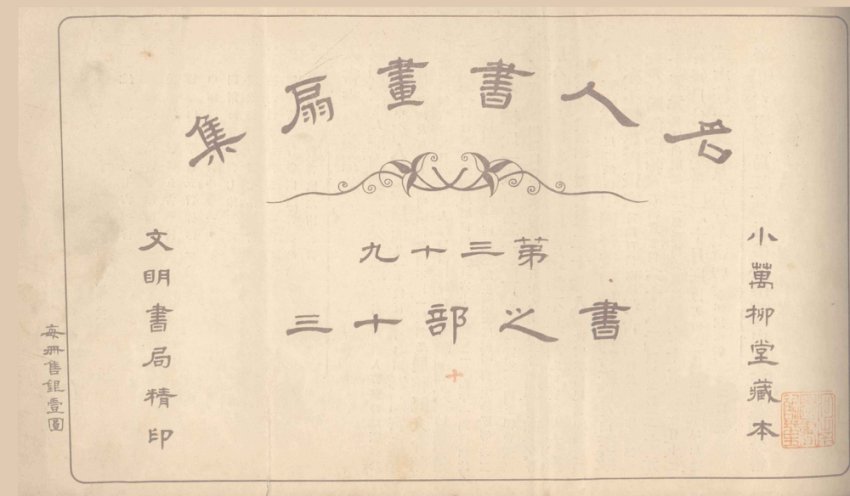 名人書畫扇集
第三十九
書之部十三
十
小萬柳堂藏本
文明書局精印
每冊售銀壹圓